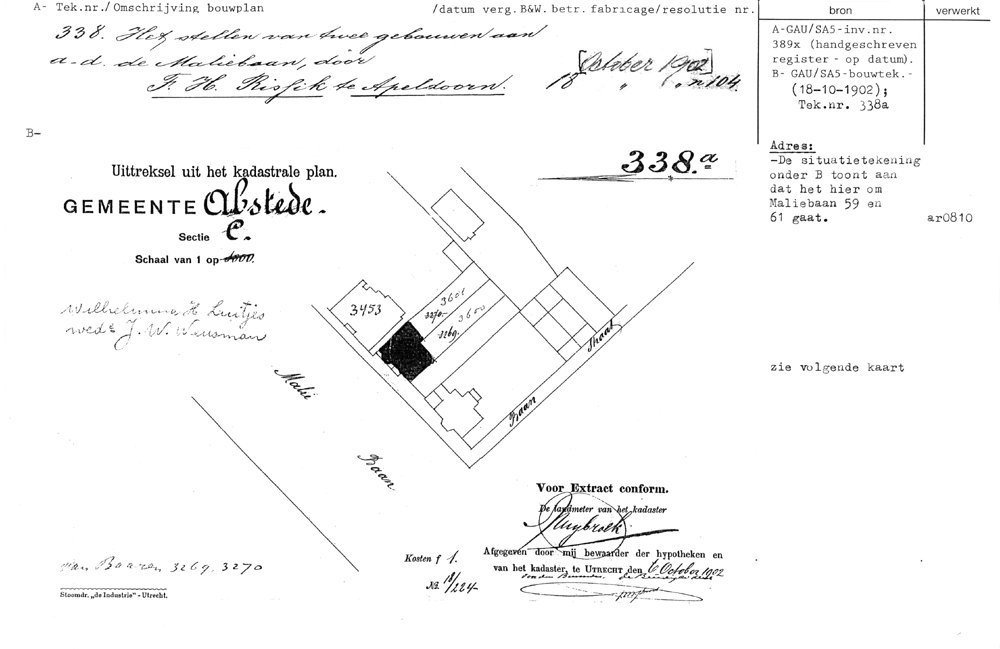 A- Tek.nr./Omschrijving bouwplan /datum verg.B&W.betr.fabricage/resolutie nr. bron verwerkt
338. Het stellen van twee gebouwen aan
a.d. de Maliebaan, door [October 1902]
F. H. Rissik te Apeldoorn. 18 " " n 104.
A-GAU/SA5-inv.nr.
389x (handgeschreven
register - op datum).
B- GAU/SA5-bouwtek.-
(18-10-1902);
Tek.nr. 338a
B-
338.a
Adres:
-De situatietekening
onder B toont aan
dat het hier om
Maliebaan 59 en
61 gaat. ar0810
zie volgende kaart
Uittreksel uit het kadastrale plan.
GEMEENTE Abstede.
Sectie C.
Schaal van 1 op 1000.
Wilhelmina H Luitjes
wed. J. W.
3453
3601
3270.
3600
3269.
Malie
Baan
Baan
Straat
Voor Extract conform.
De landmeter van het kadaster
Ruybroek
Kosten f 1.
Afgegeven door mij bewaarder der hypotheken en
van het kadaster, te UTRECHT den 6 October 1902
No. 18/224
van Baaren 3269, 3270
Stoomdr. „de Industrie" - Utrecht.